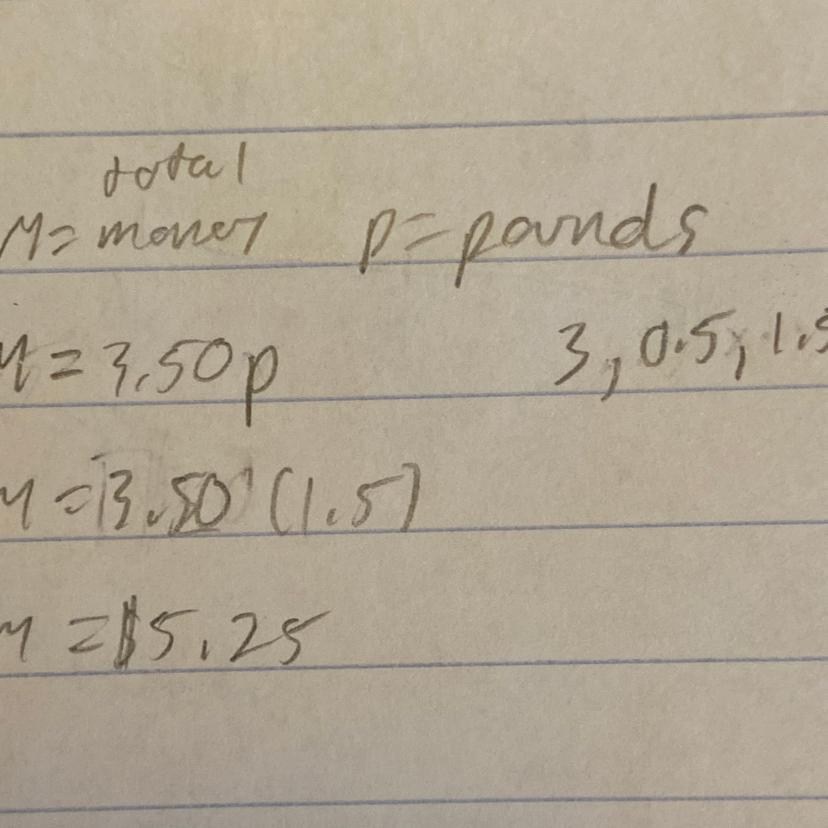 total
M = money p = pounds
M = 3.50p 3, 0.5, 1.5
M = 3.50 (1.5)
M = $5.25